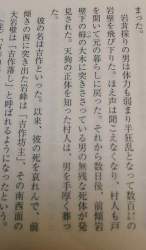 まった。
一真探りの男は体力も弱まり半狂乱となって数百にの
岩壁を飛び下りた。ほえ声は聞こえなくなり、村人も戸
を開いて元の暮しに戻った。それから数日後、前傾岩
壁下の緑の大木に突きささった男の無残な死体が発
見された。天狗の正体を知った村人は、男を手厚く葬っ
彼の名は吉作といった。以来、彼の死を哀れんで、前
傾きの西に突き出た岩峰は「吉作坊主」、その南西面の
大岩壁は「吉作落し」と呼ばれるようになったという。